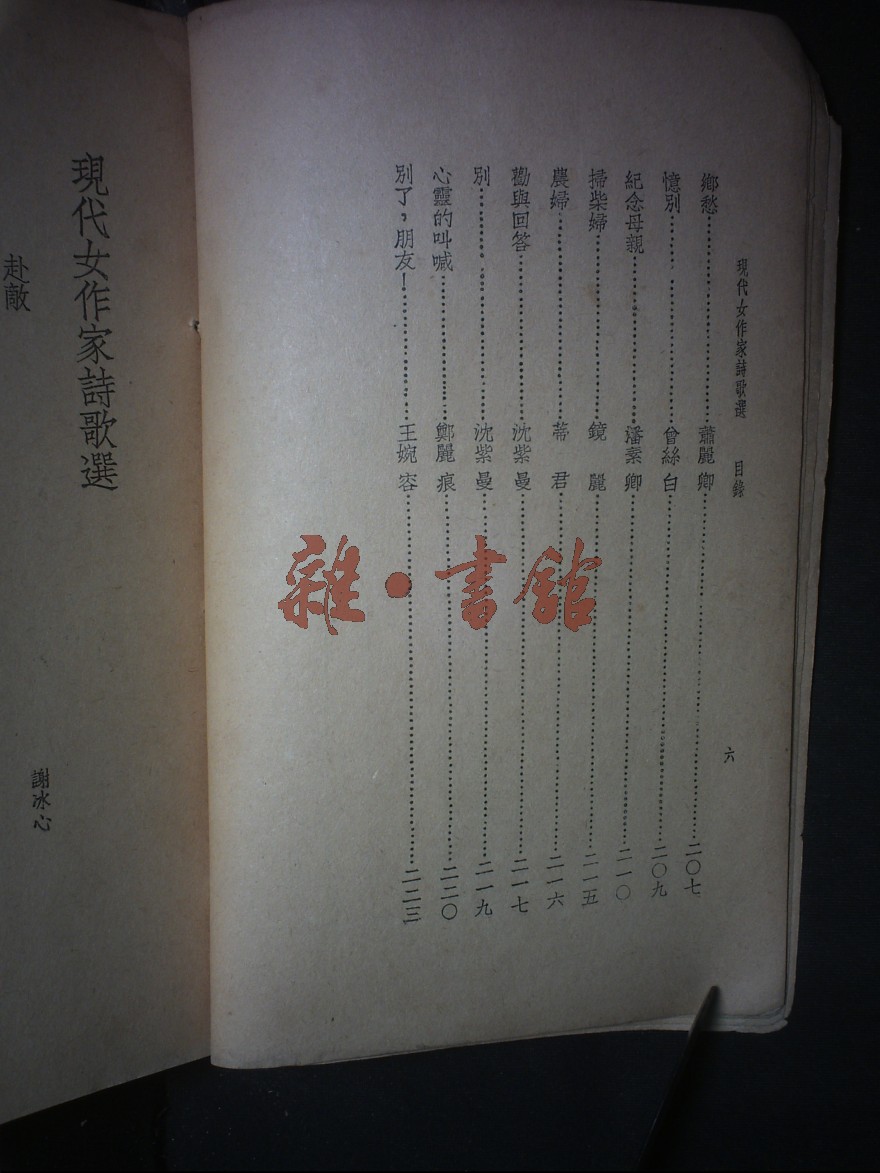 現代女作家詩歌選 目錄 六
鄉愁……蕭麗卿……二〇七
憶別……曾絲白……二〇九
紀念母親……潘素卿……二一〇
掃柴婦……鏡麗……二一五
農婦……蒂君……二一六
勸與回答……沈紫曼……二一七
別……沈紫曼……二一九
心靈的叫喊……鄭麗痕……二二〇
別了，朋友！……王婉容……二二三
現代女作家詩歌選
赴敵
謝冰心
雜·書館